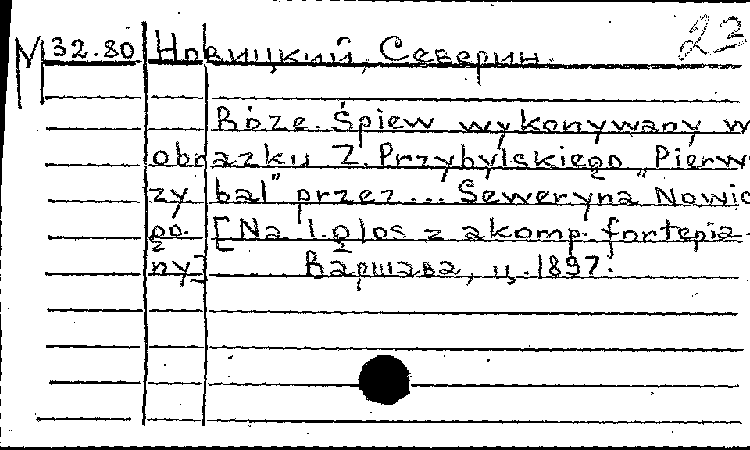 23
М 32.80 Новицкий, Северин.
Róże. Śpiew wykonywany w
obrazku Z. Przybylskiego „Pierw
zy bal" przez... Seweryna Nowic
go. [Na 1 głos z akomp. fortepia-
ny] Варшава, ц. 1897.